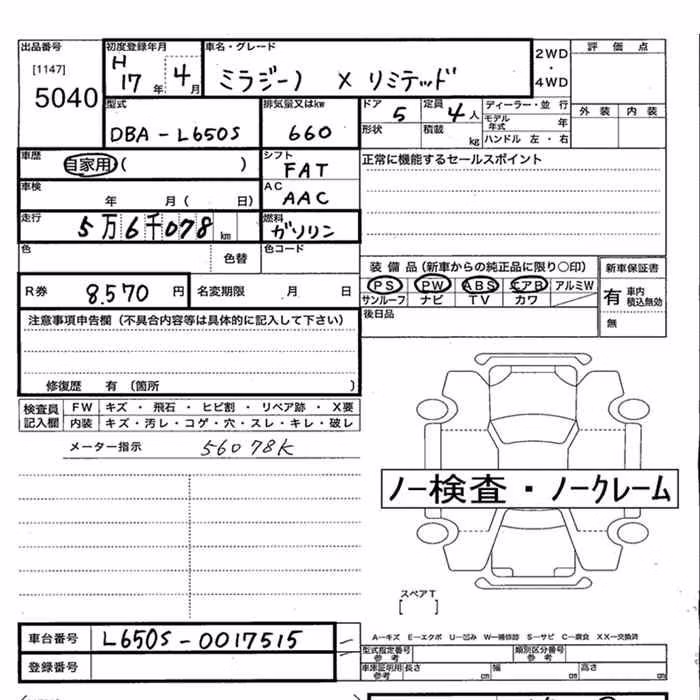 出品番号 初度登録年月 車名・グレード 2WD ・ 4WD 評価点
[1147] 5040
H 17年 4月 ミラジーノ X リミテッド
外装 内装
型式 排気量又はkw ドア 5 定員 4人 ディーラー・並行
DBA-L650S 660 形状 積載 kg モデル年式 年
ハンドル 左・右
車歴 自家用( ) シフト FAT 正常に機能するセールスポイント
車検 年 月( 日) AC AAC
走行 5万6千078km 燃料 ガソリン
色 色替 色コード
装備品(新車からの純正品に限り○印) 新車保証書
PS PW ABS エアB アルミW 有 車内積込無効
サンルーフ ナビ TV カワ
無
R券 8.570円 名変期限 月 日
後日品
注意事項申告欄(不具合内容等は具体的に記入して下さい)
修復歴 有(箇所 )
検査員記入欄 FW キズ・飛石・ヒビ割・リペア跡・X要
内装 キズ・汚レ・コゲ・穴・スレ・キレ・破レ
メーター指示 56078K
ノー検査・ノークレーム
スペアT
[ ]
車台番号 L650S-0017515
A-キズ E-エクボ U-凹み W-補修跡 S-サビ C-腐食 XX-交換済
登録番号
型式指定番号 参考 類別区分番号 参考
車庫証明用 参考 長さ cm 幅 cm 高さ cm